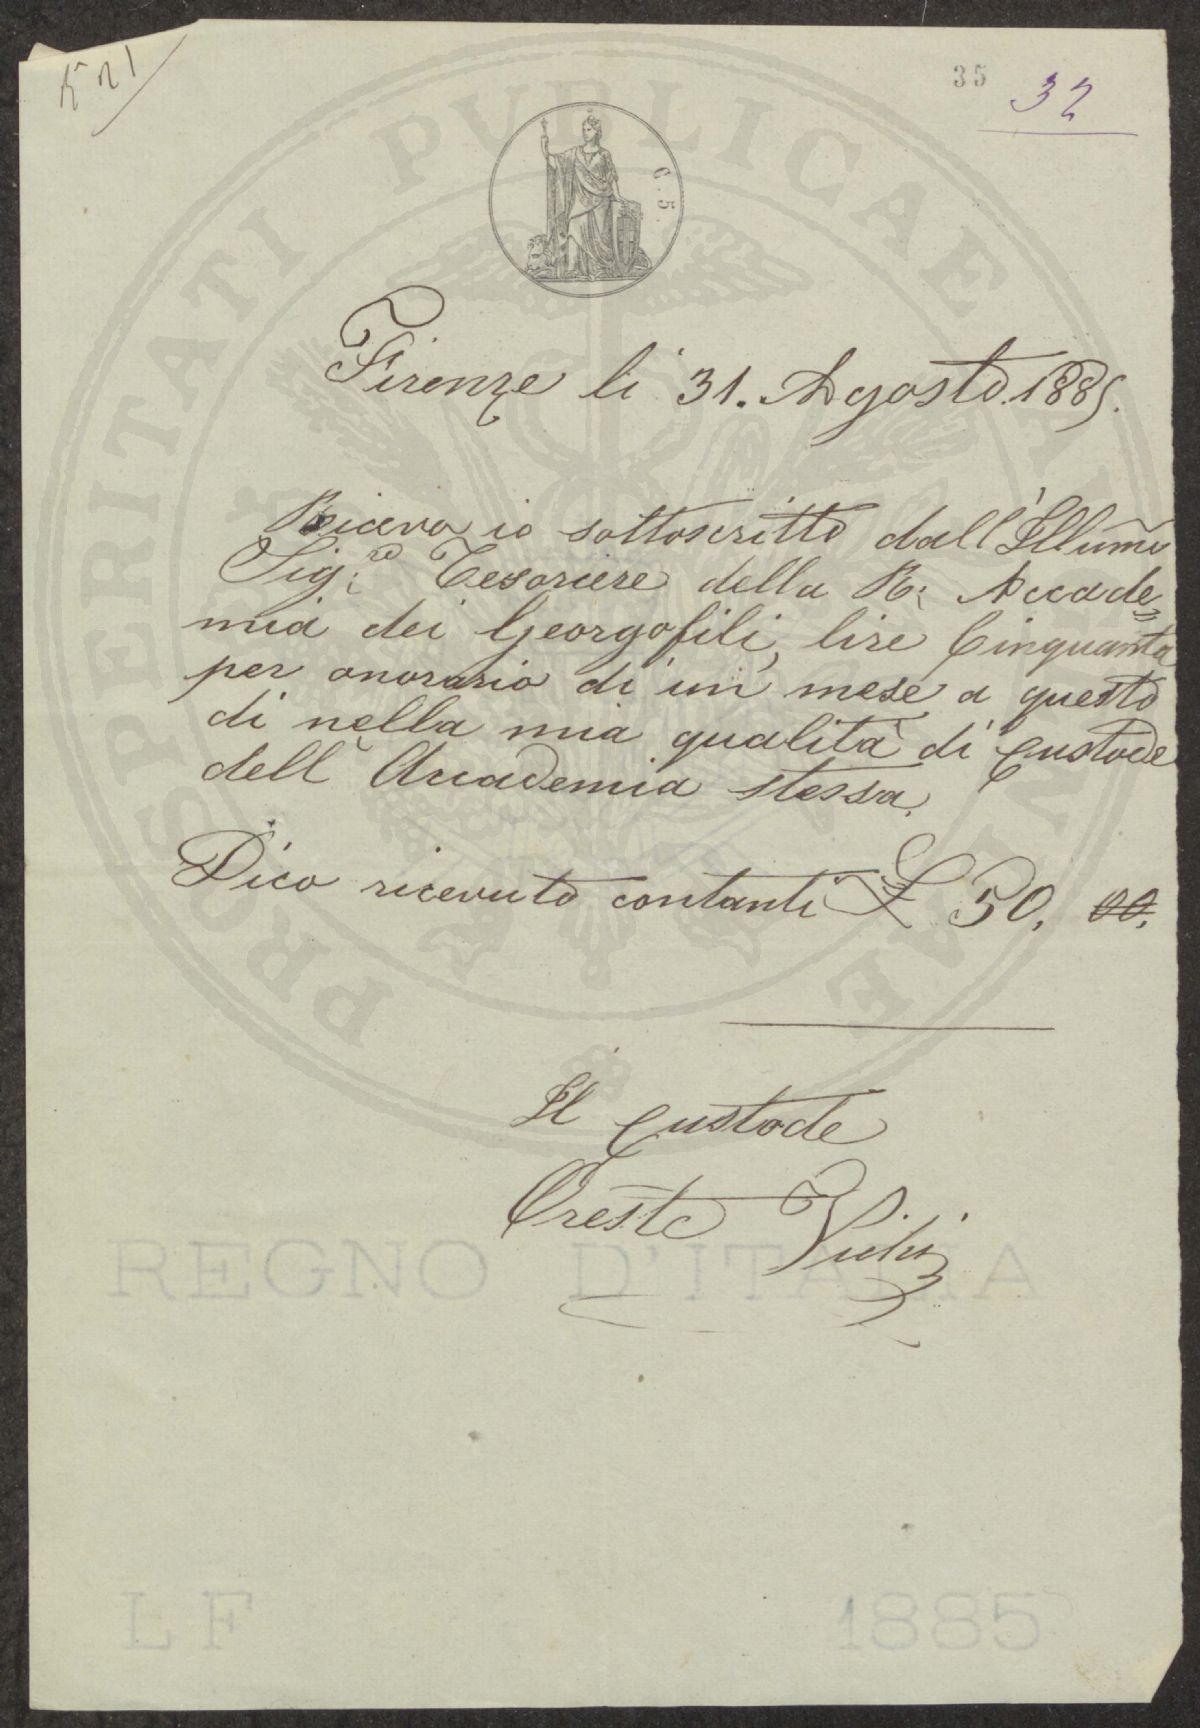 35
32
C. 5.
PROSPERITATI PUBLICAE
Firenze li 31. Agosto. 1885.
Ricevo io sottoscritto dall'Illumo
Sig:re Tesoriere della R: Accade=
mia dei Georgofili, lire Cinquanta
per onorario di un mese a questo
dì nella mia qualità di Custode
dell'Accademia stessa.
Dico ricevuto contanti £ 50, 00.
Il Custode
Oreste
REGNO D'ITALIA
LF 1885